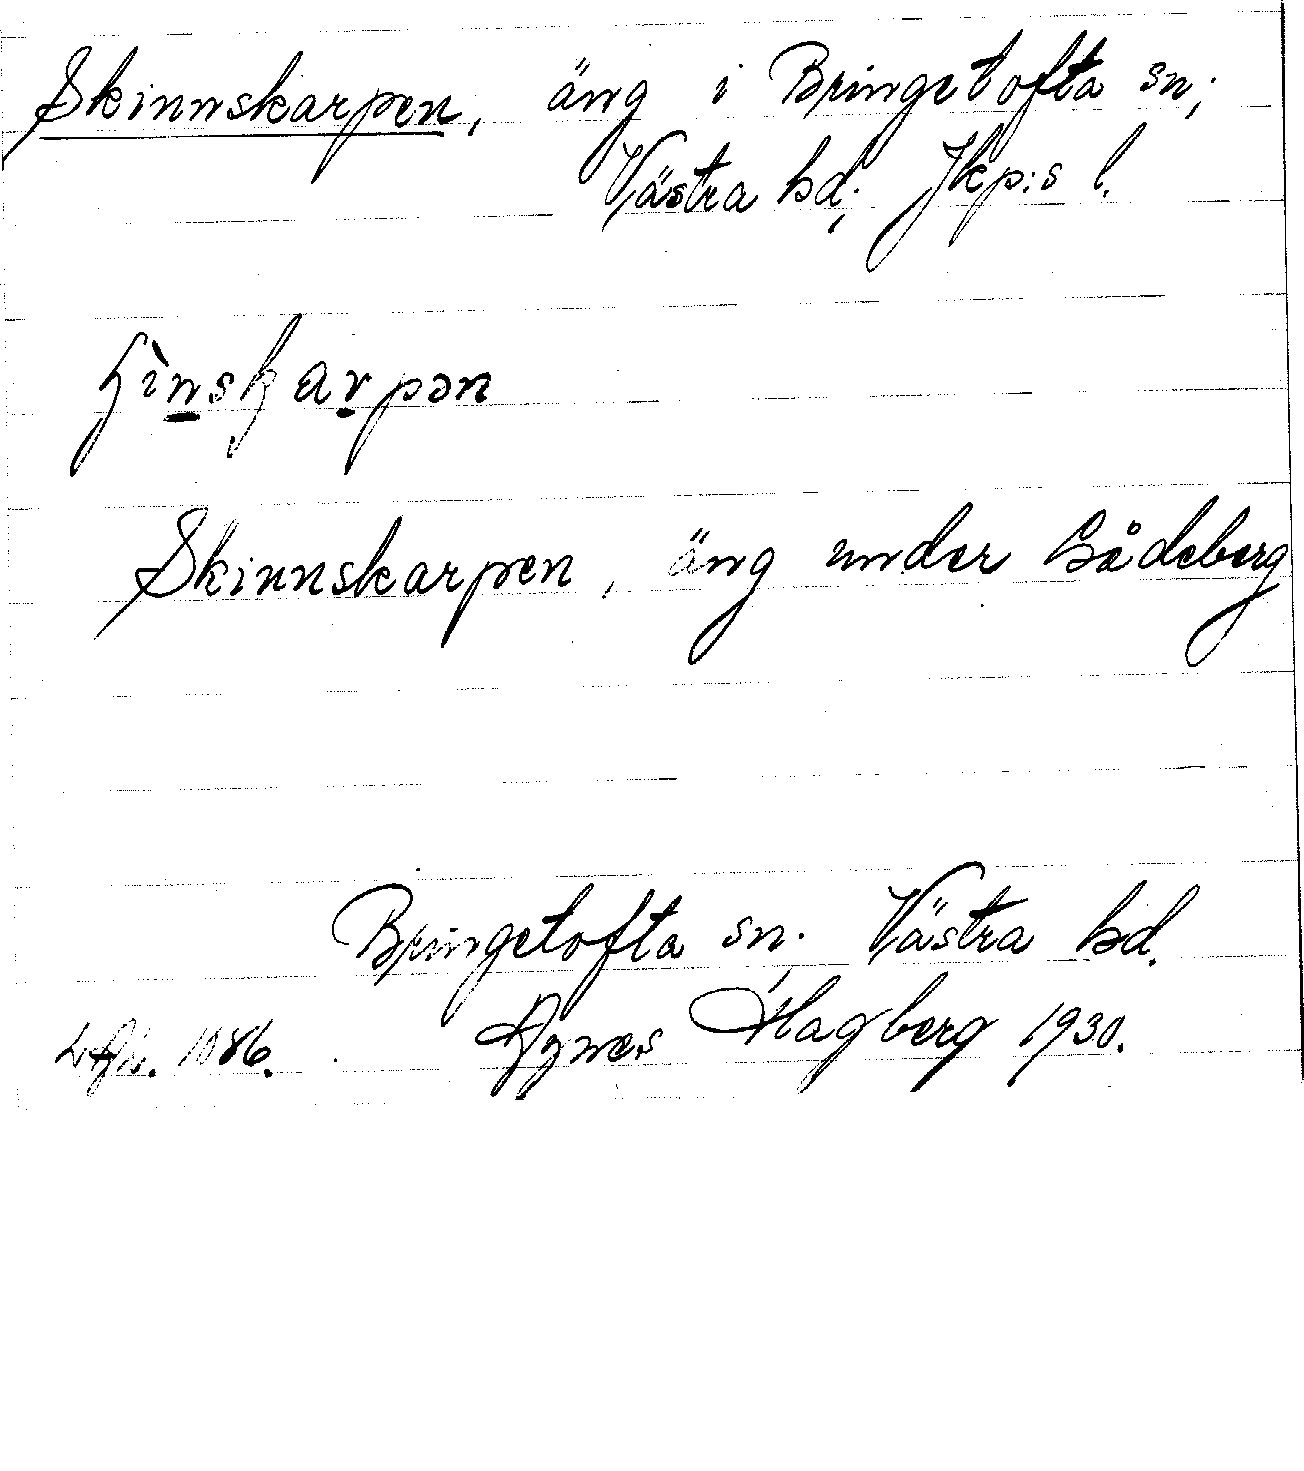 Skinnskarpen, äng i Bringetofta sn;
Västra hd; Jkp:s l.
Skinnskarpen, äng under Gådeberg
Bringetofta sn. Västra hd.
1086. Agnes Hagberg 1930.